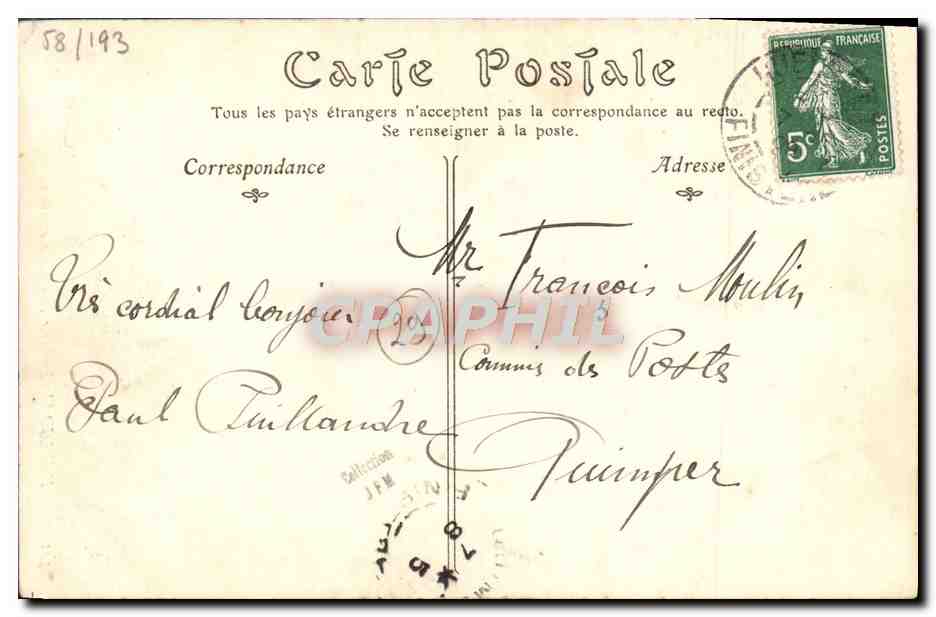 58/193
Carte Postale
Tous les pays étrangers n'acceptent pas la correspondance au recto.
Se renseigner à la poste.
REPUBLIQUE FRANÇAISE
5c
POSTES
FINIS
Correspondance
Adresse
Mr François Moulin
Très cordial bonjour
29
CPAPHIL
Commis des Postes
Paul Puillandre
Quimper
Collection
J F M